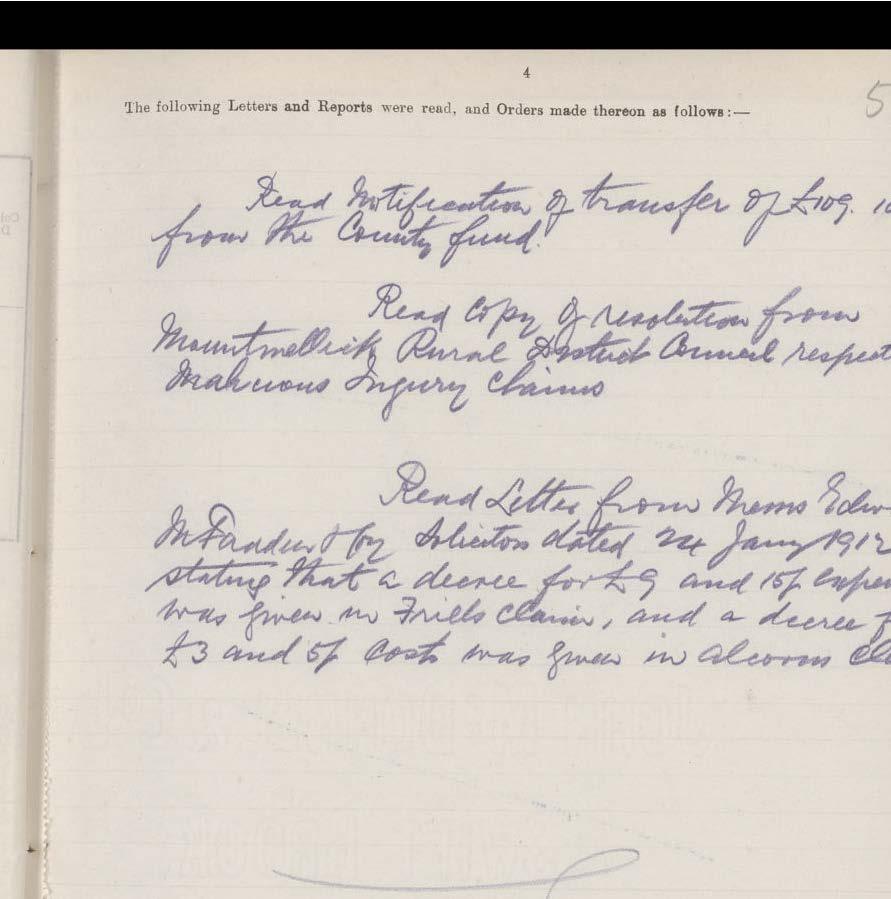 4
5
The following Letters and Reports were read, and Orders made thereon as follows:—
Read Notification of transfer of £109. 1
from the County fund.
Read Copy of resolution from
Mountmellick Rural District Council respect
Malicious Injury Claims
Read Letter from Messrs Edw
McFadden & Coy Solicitors dated 24 Jany 191
stating that a decree for £9 and 15/ expen
was given in Friels claim, and a decree f
£3 and 5/ Costs was given in Alcorns cl